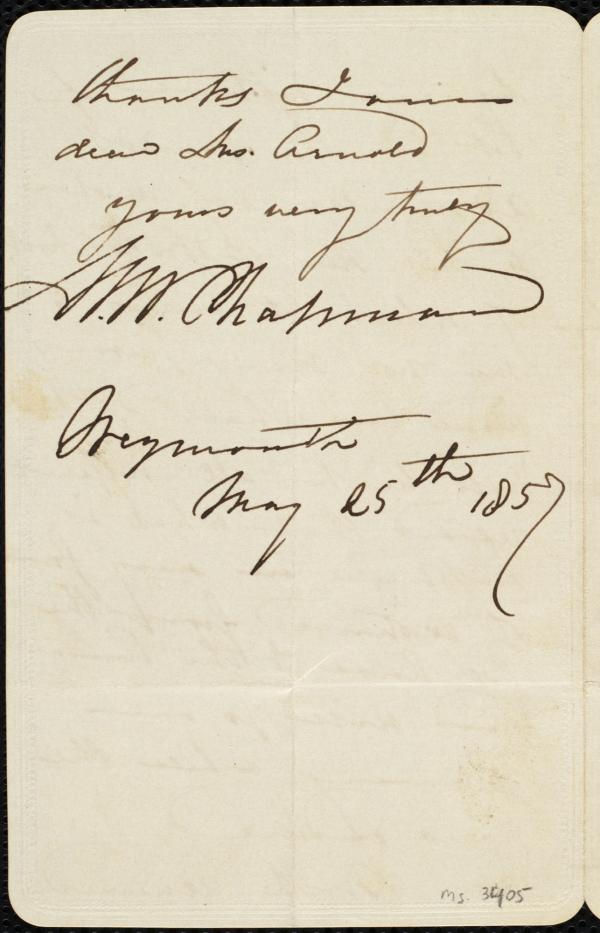 thanks I am
dear Mrs. Arnold
yours very truly
M. W. Chapman
Weymouth
May 25th 1857
ms. 3405